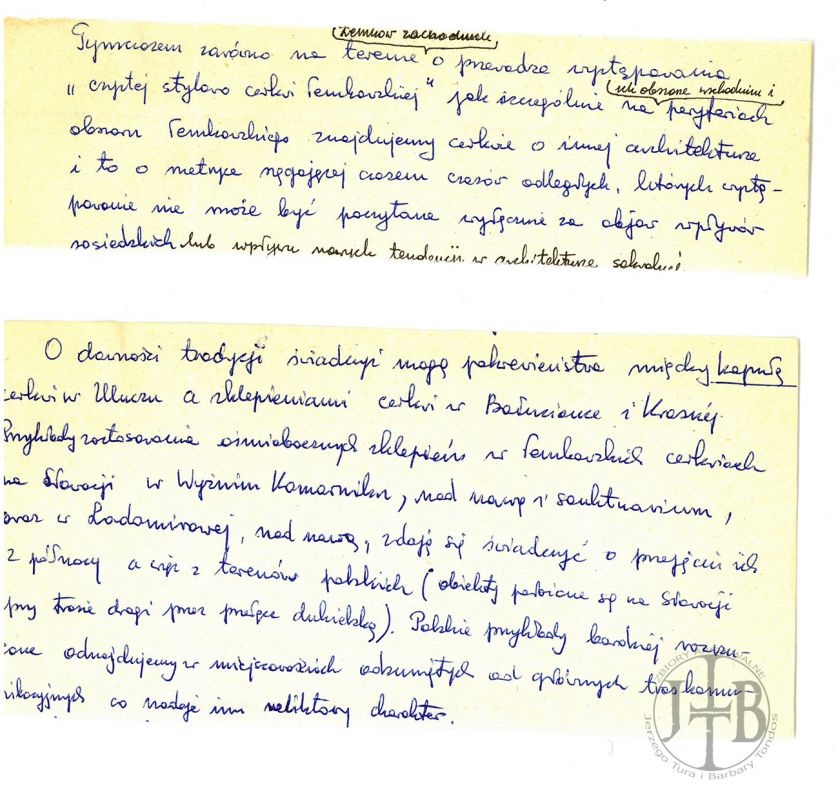 Łemków zachodnich
Tymczasem zarówno na terenie o przewadze występowania
"czystej stylowo cerkwi łemkowskiej" jak szczególnie na peryferiach
obszaru łemkowskiego znajdujemy cerkwie o innej architekturze
i to o metryce sięgającej czasem czasów odległych, których wystę-
powanie nie może być poczytane wyłącznie za objaw wpływów
sąsiedzkich lub wpływu nowych tendencji w architekturze sakralnej
O dawności tradycji świadczyć mogą pokrewieństwa między kopułą
cerkwi w Uluczu a sklepieniami cerkwi w Bałuciance i Kraskiej.
Przykłady zastosowania ośmiobocznych sklepień w łemkowskich cerkwiach
na Słowacji w Wyżnim Komarniku, nad nawą i sanktuarium,
oraz w Ladomirowej, nad nawą, zdają się świadczyć o przejęciu ich
z północy a więc z terenów polskich (obiekty położone są na Słowacji
przy trasie drogi przez przełęcz dukielską). Polskie przykłady bardziej rozwi-
odnajdujemy w miejscowościach odsuniętych od głównych tras komu-
nikacyjnych co nadaje im reliktowy charakter.
ZBIORY
JTTB
Jerzego Tura i Barbary Tondos